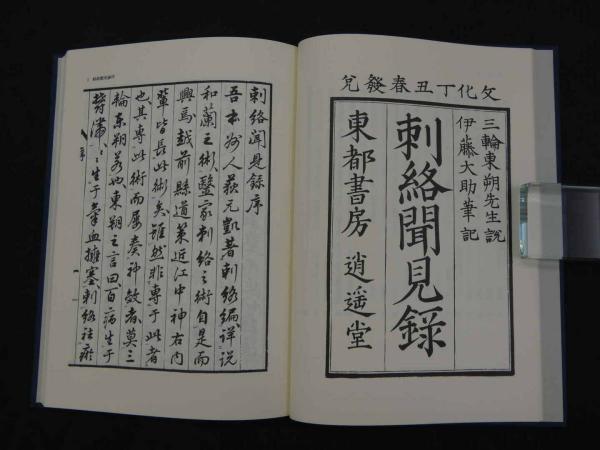 文化丁丑春發兌
三輪東朔先生説
伊藤大助筆記
刺絡聞見録
東都書房 逍遥堂
刺絡聞見録序
吾本州人荻元凱著刺絡編詳説
和蘭之術毉家刺絡之術自是而
興焉越前縣道策近江中神右内
輩皆長此術矣雖然非專于此者
也其專此術而屢奏神效者莫三
輪東朔若也東朔之言曰百病生于
欝滯欝滯生于毒血擁塞刺絡祛瘀
序